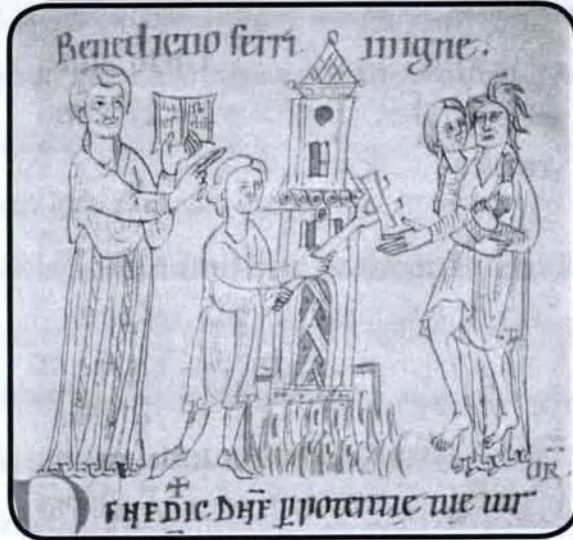 Benedictio ferri inigne.
ENEDIC DNE ꝑ potentie tue uir